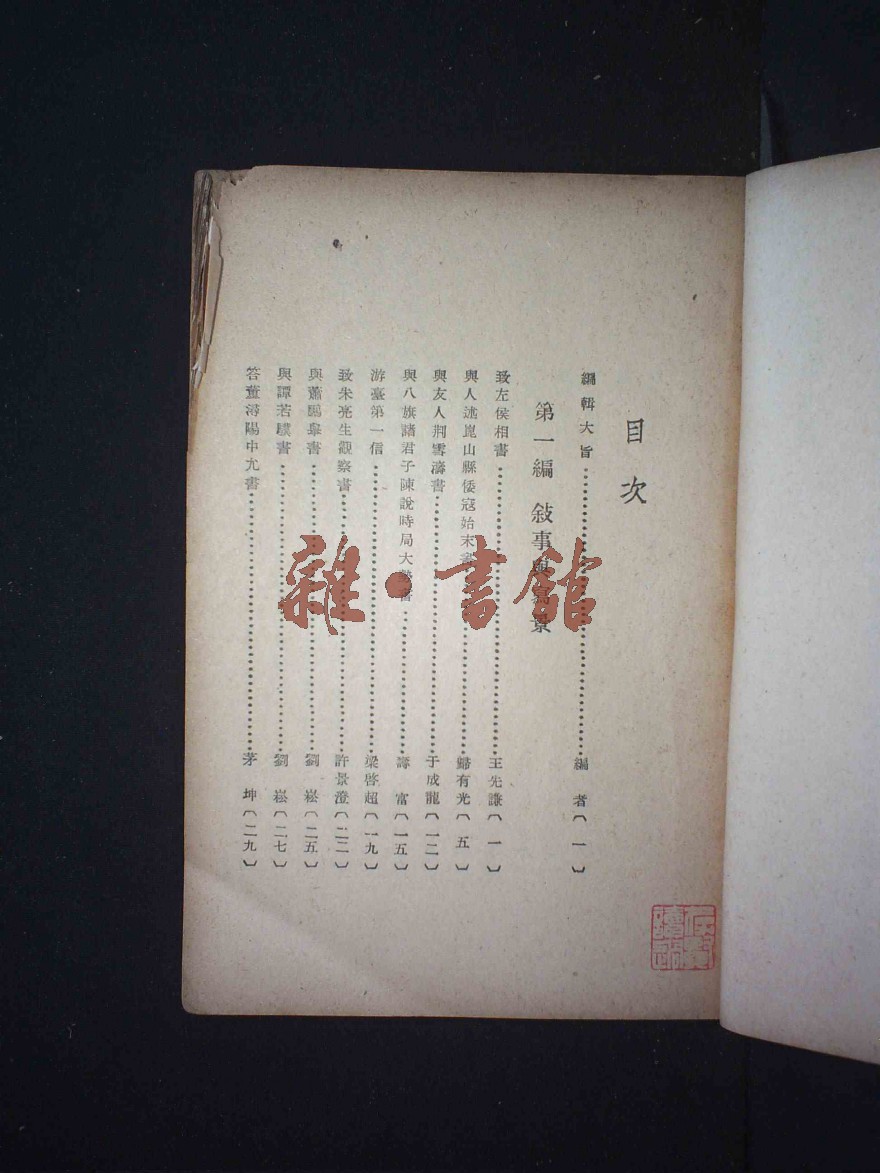 目次
編輯大旨……編者〔一〕
第一編 敍事與寫景
致左侯相書……王先謙〔一〕
與人述崑山縣倭寇始末書……歸有光〔五〕
與友人荆雪濤書……于成龍〔一二〕
與八旗諸君子陳說時局大勢書……壽富〔一五〕
游臺第一信……梁啓超〔一九〕
致朱亮生觀察書……許景澄〔二二〕
與蕭鵬舉書……劉崧〔二五〕
與譚若驥書……劉崧〔二七〕
答董潯陽中尤書……茅坤〔二九〕
雜·書館